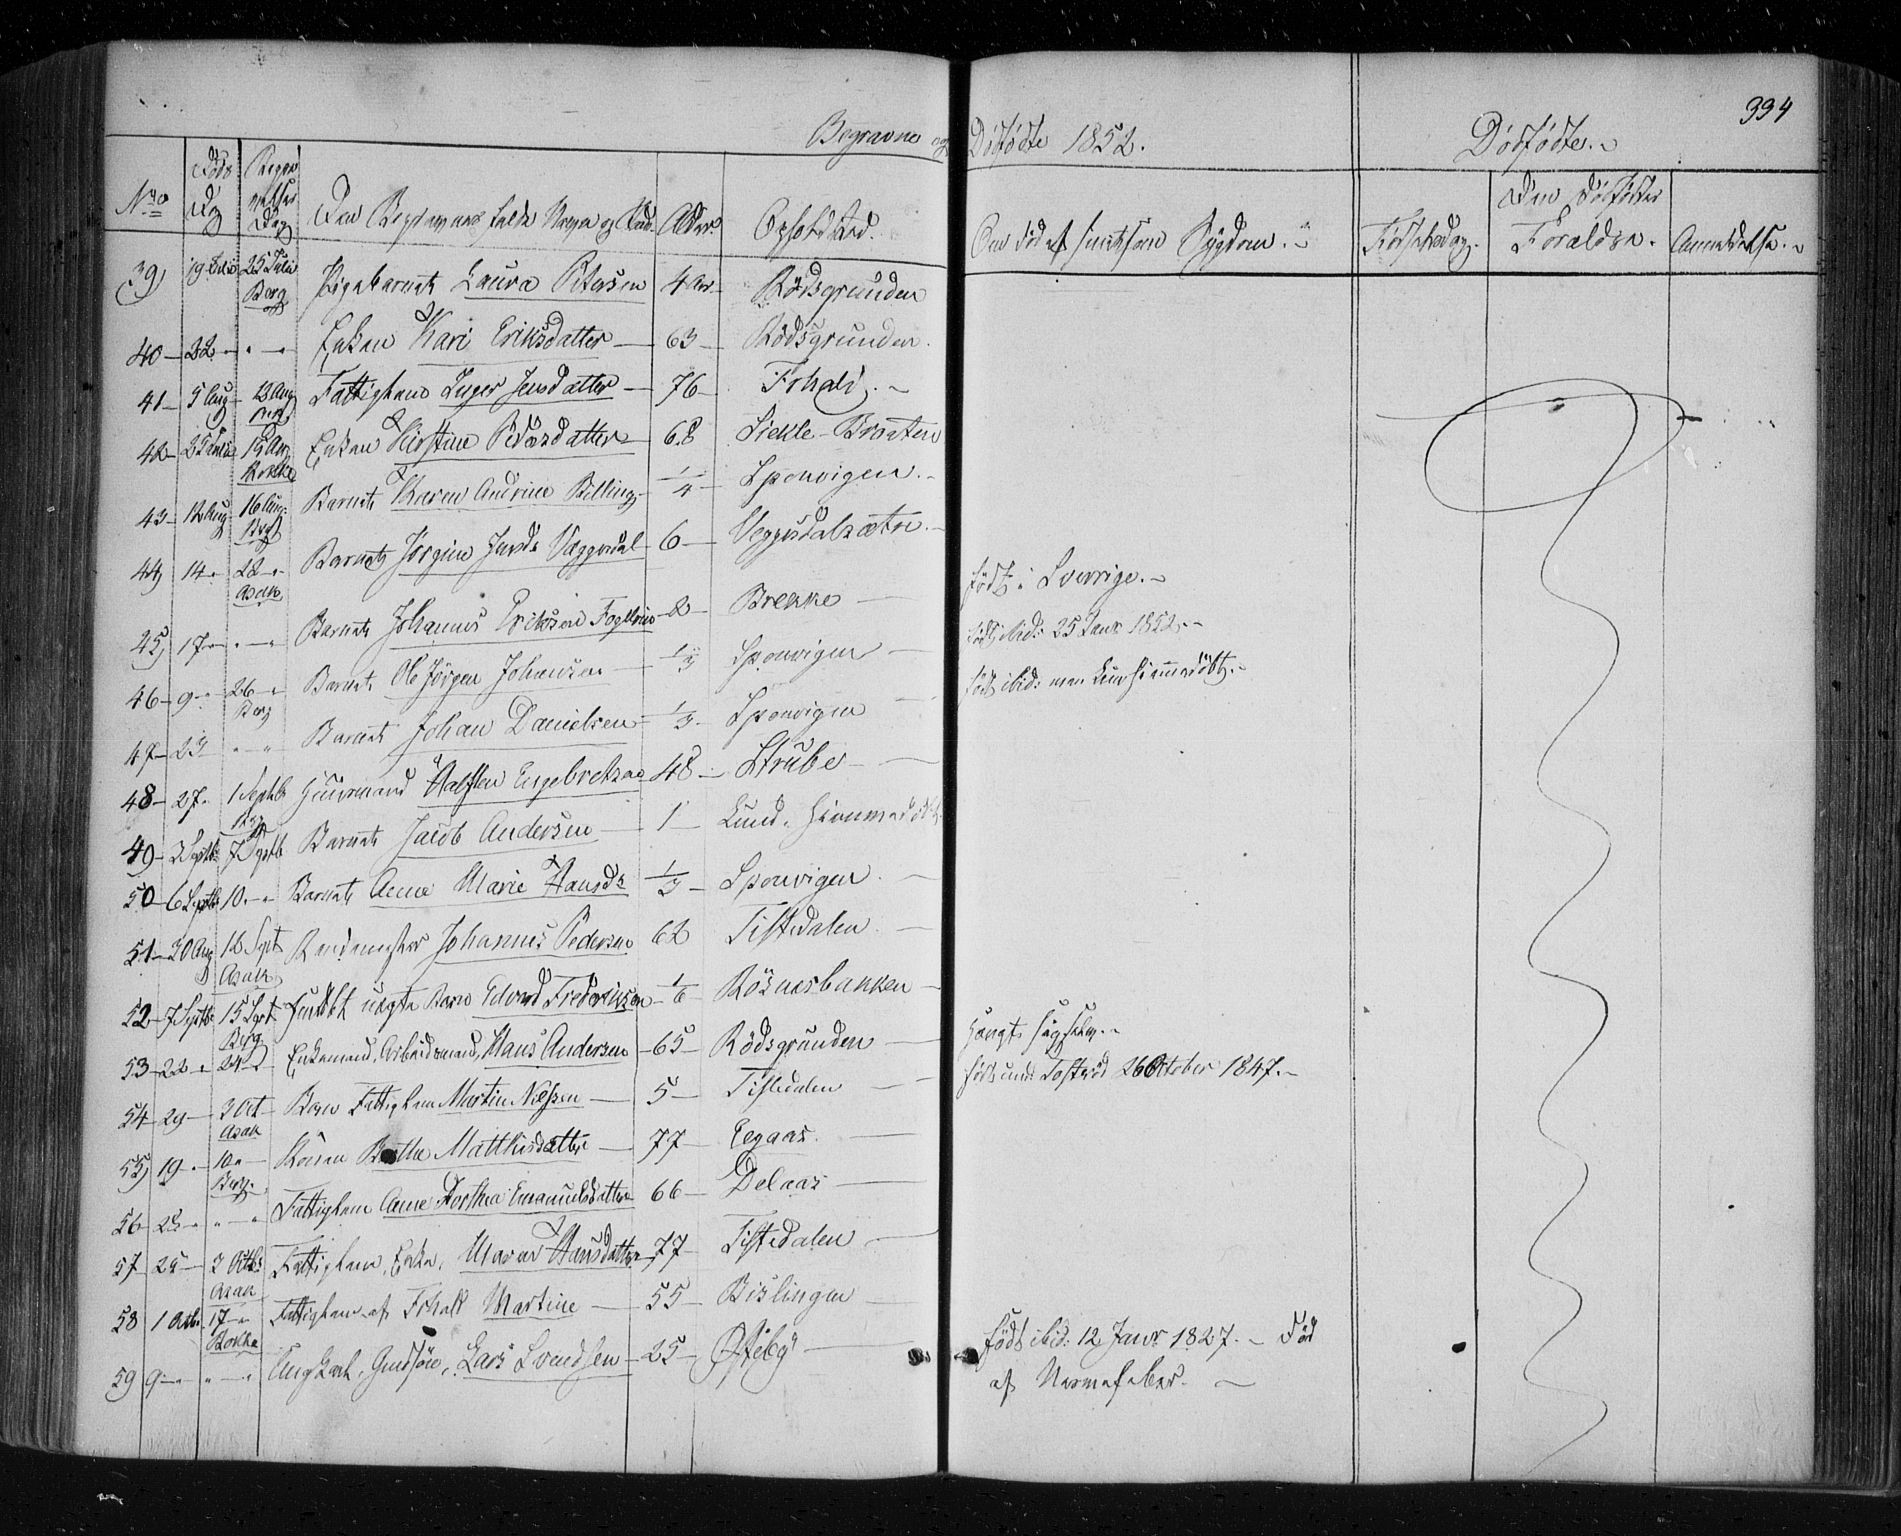 394
Begravne og Dødfødte 1852.
Dødfødte.
No Døds Dag Begravelses Dag Den Begravnes fulde Navn og Stand. Alder. Opholdsted.
Om død af smitsom Sygdom. Fødselsdag. Den Dødfødtes Forældre. Anmeldelse.
39 19 Juli 25 Juli Berg Pigebarnet Laura Petersen 4 Aar Rödsgrunden
40 22 " " Enken Kari Eriksdatter 63 Rödsgrunden
41 5 Aug 13 Aug Fattiglem Inger Jensdatter 76
42 15 Aug Rokke Enken Kirstine Pedersdatter 68 Liekle-Braaten
43 12 Aug 16 Aug Berg Barnet Karen Andrine Billing 1/4 Sponvigen
44 14 22 Asak Barnet Jörgine 6
født i Sverrige.
45 17 " " Barnet Johannes Eriksen 2 Brekke
født ibid: 25 Janr 1852
46 9 26 Berg Barnet Ole Jörgen Johansen 1/3 Sponvigen
født ibid: men kun hjemmedöbt.
47 23 " " Barnet Johan Danielsen 1/3 Sponvigen
48 27 1 Septb Berg Huusmand Halfsten Engebretsen 48 Strube
49 3 Septb 7 Septb Barnet Jacob Andersen 1 Lund. Hjemmedöbt
50 6 Septb 10 " Barnet Anne Marie Hansd. 1/3 Sponvigen
51 30 Aug 12 Sept Asak Johannes Pedersen 62 Tistedalen
52 7 Septb 15 Sept Berg uægte Barn Edvard Frederiksen 1/6 Rösnesbakken
53 22 24 Enkemand, Arbeidsmand, Hans Andersen 65 Rödsgrunden
Hængt sig selv.
54 29 3 Oct Asak Barn Fattiglem Martin Nielsen 5 Tistedalen
født 26 October 1847.
55 19 10 Berg Konen Berthe Matthisdatter 77 Eegaas
56 28 " " Fattiglem Anne Dorthea Emanuelsdatter 66 Delaas
57 25 3 Octb Asak Fattiglem, Enke, Maren Hansdatter 77 Tistedalen
58 1 Octb 17 Rokke Fattiglem af Martine 55 Bislingen
59 9 " " Ungkarl, Lars Svendsen 25 Østeby
født ibid: 12 Janr 1827. Død
af Nervefeber.